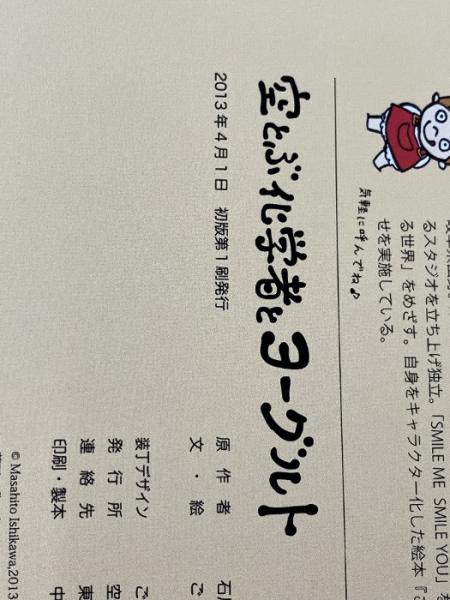 るスタジオを立ち上げ独立。「SMILE ME SMILE YOU」を
る世界」をめざす。自身をキャラクター化した絵本『
せを実施している。
気軽に呼んでね♪
空とぶ化学者とヨーグルト
2013年4月1日 初版第1刷発行
原作者 石
文・絵 ご
装丁デザイン ご
発行所 空
連絡先 東
印刷・製本 中
© Masahito Ishikawa,2013